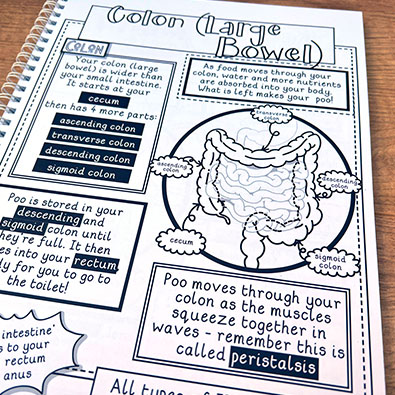 Colon (Large
Bowel)
COLON
Your colon (large
bowel) is wider than
your small intestine.
It starts at your
cecum
then has 4 more parts:
ascending colon
transverse colon
descending colon
sigmoid colon
As food moves through your
colon, water and more nutrients
are absorbed into your body.
What is left makes your poo!
transverse
colon
descending
colon
descending
colon
cecum
sigmoid
colon
Poo is stored in your
descending and
sigmoid colon until
they're full. It then
into your rectum
for you to go to
the toilet!
Poo moves through your
colon as the muscles
squeeze together in
waves - remember this is
called peristalsis
intestine'
s to your
rectum
anus
All types of